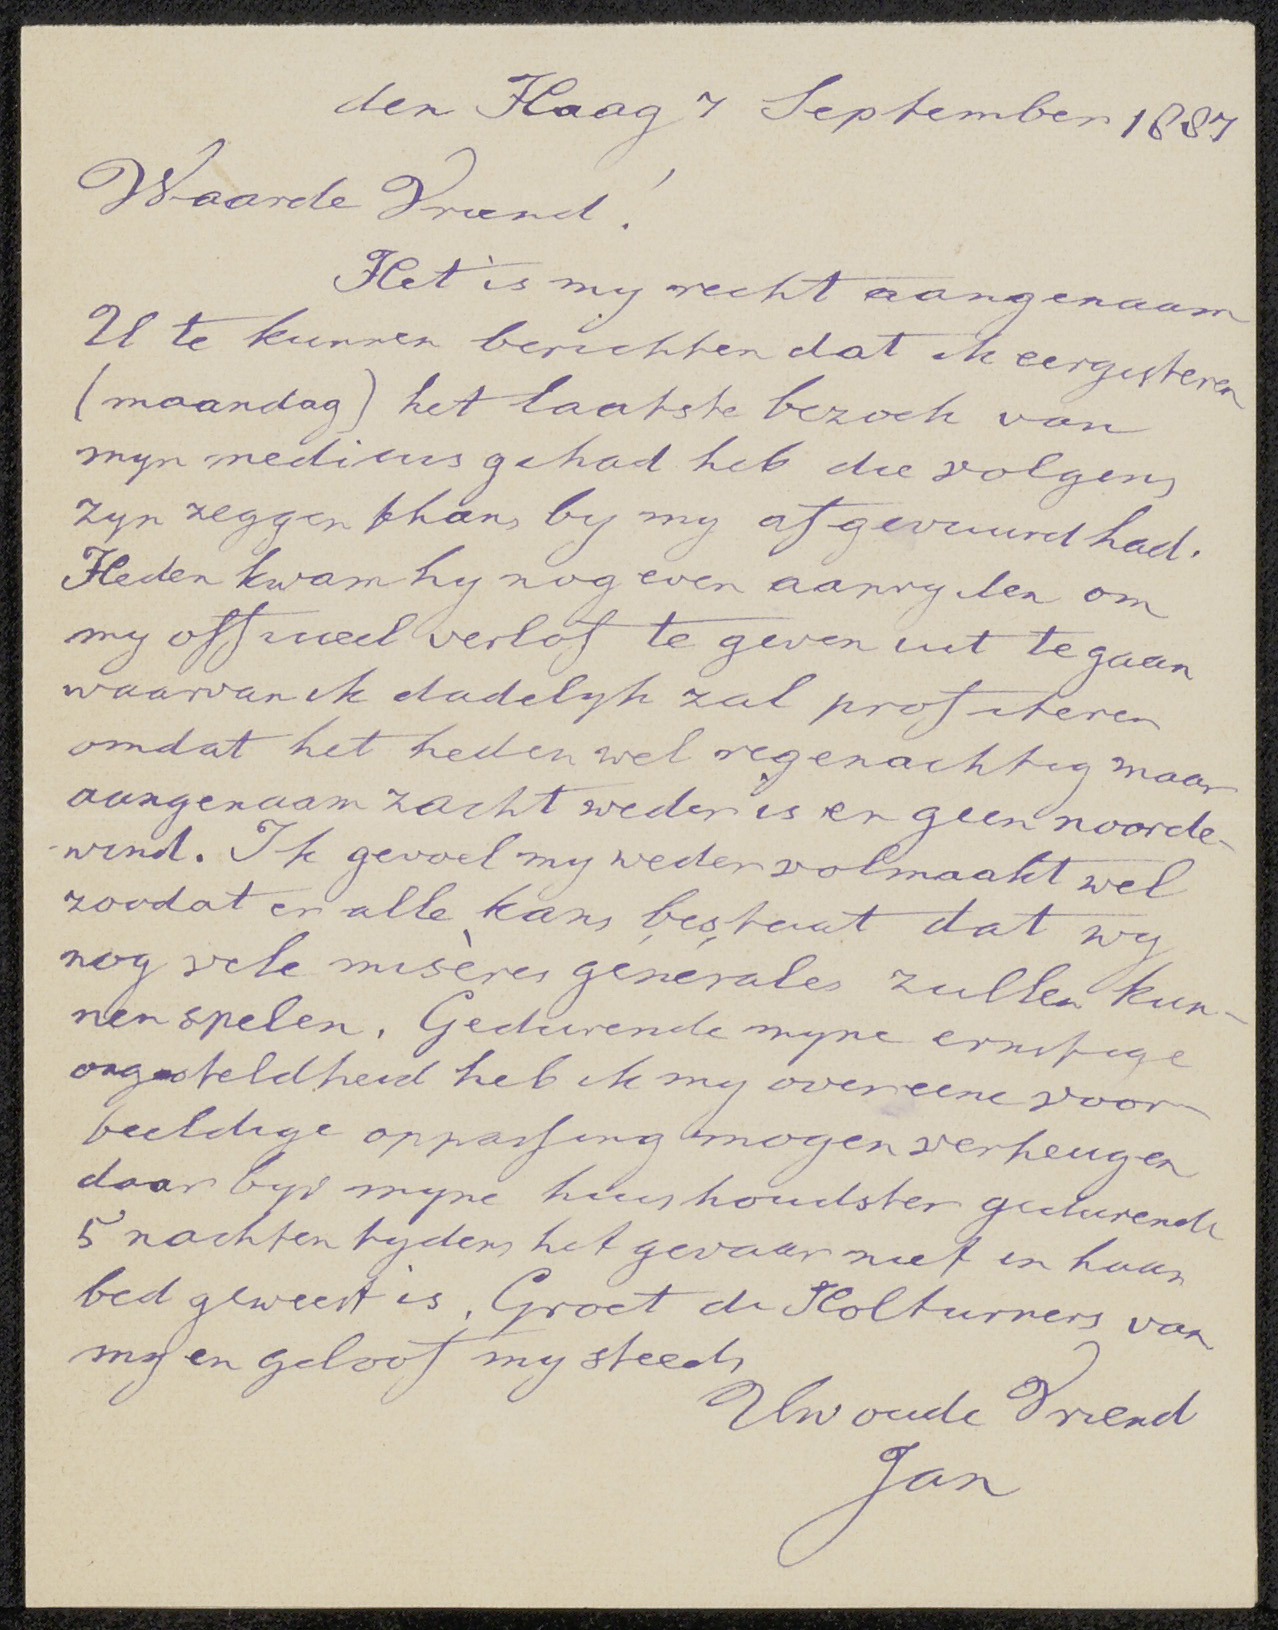 den Haag 7 September 1887
Waarde Vriend!
Het is my recht aangenaam
U te kunnen berichten dat ik eergisteren
(maandag) het laatste bezoek van
myn medicus gehad heb die volgens
zyn zeggen thans by my afgevuurd had.
Heden kwam hy nog even aanryden om
my officieel verlof te geven uit te gaan
waarvan ik dadelyk zal profiteren
omdat het heden wel regenachtig maar
aangenaam zacht weder is en geen noorde-
wind. Ik gevoel my weder volmaakt wel
zoodat er alle kans bestaat dat wy
nog vele misères générales zullen kun-
nen spelen. Gedurende myne ernstige
ongesteldheid heb ik my over eene voor
beeldige oppassing mogen verheugen
daar myne huishoudster gedurende
5 nachten tydens het gevaar niet in haar
bed geweest is. Groet de Holturners van
my en geloof my steeds
Uw oude Vriend
Jan